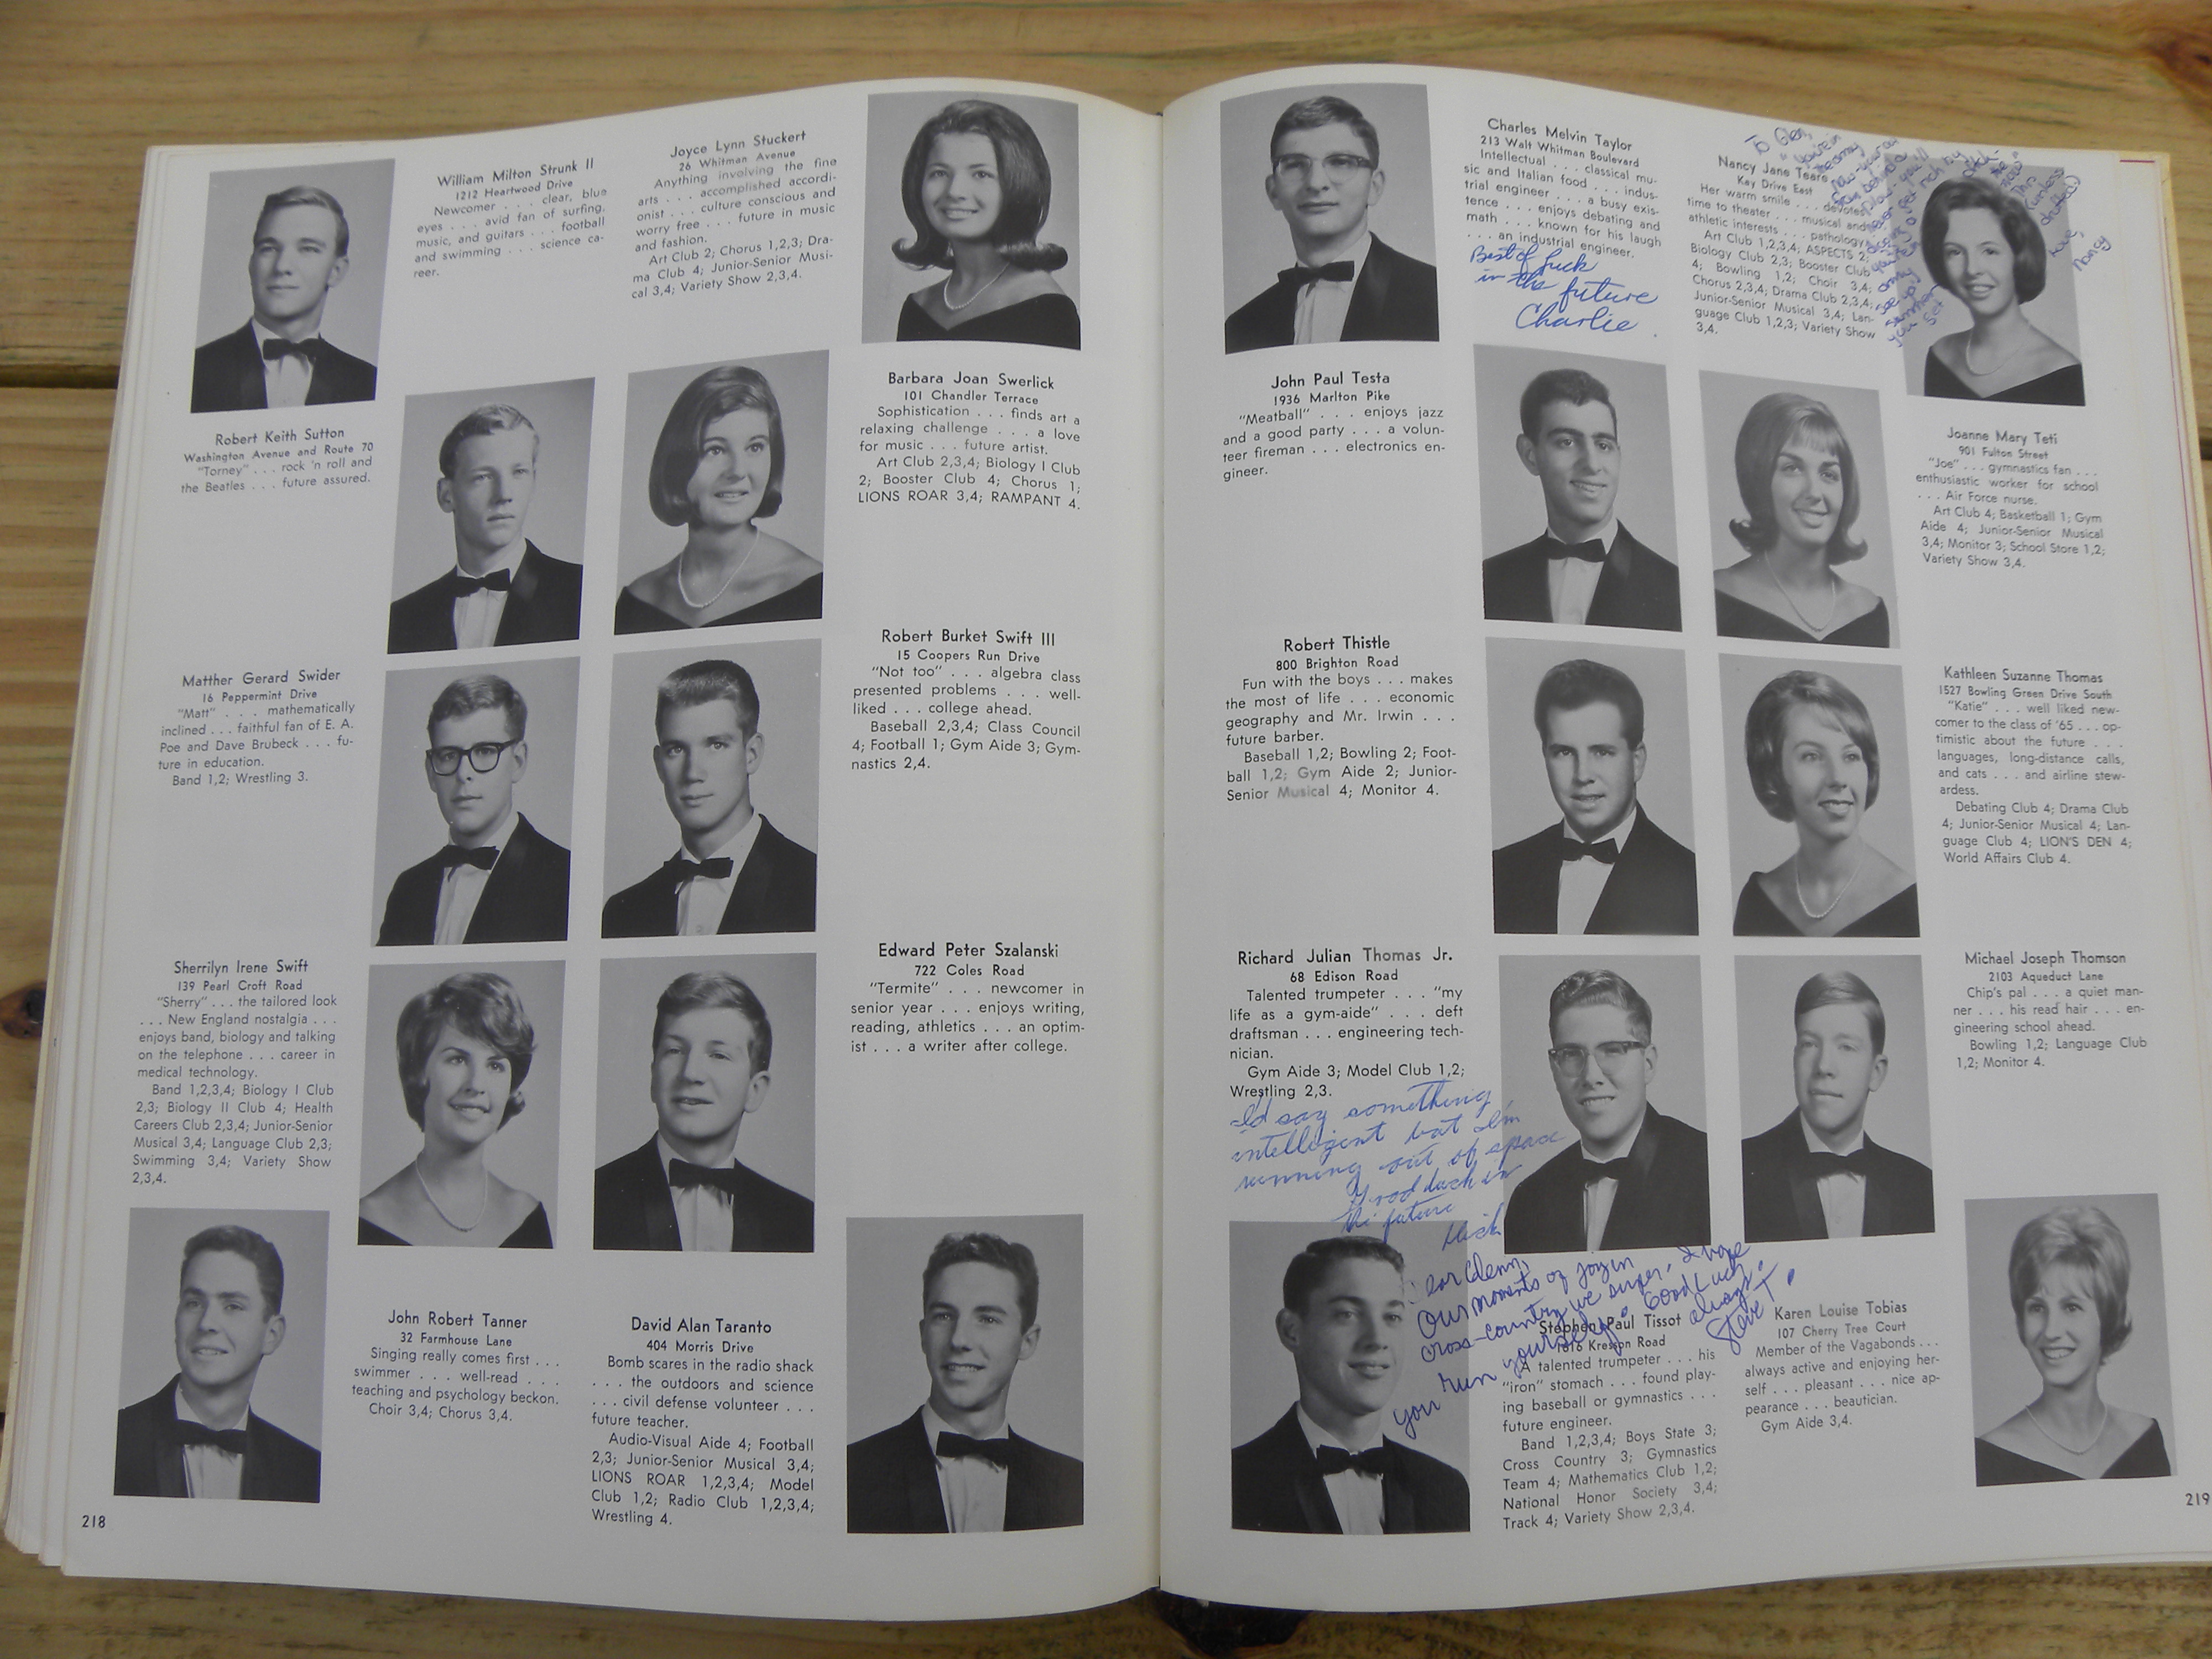 William Milton Strunk II
1212 Heartwood Drive
Newcomer . . . clear, blue
eyes . . . avid fan of surfing,
music, and guitars . . . football
and swimming . . . science ca-
reer.
Joyce Lynn Stuckert
26 Whitman Avenue
Anything involving the fine
arts . . . accomplished accordi-
onist . . . culture conscious and
worry free . . . future in music
and fashion.
Art Club 2; Chorus 1,2,3; Dra-
ma Club 4; Junior-Senior Musi-
cal 3,4; Variety Show 2,3,4.
Robert Keith Sutton
Washington Avenue and Route 70
"Torney" . . . rock 'n roll and
the Beatles . . . future assured.
Barbara Joan Swerlick
101 Chandler Terrace
Sophistication . . . finds art a
relaxing challenge . . . a love
for music . . . future artist.
Art Club 2,3,4; Biology I Club
2; Booster Club 4; Chorus 1;
LIONS ROAR 3,4; RAMPANT 4.
Matther Gerard Swider
16 Peppermint Drive
"Matt" . . . mathematically
inclined . . . faithful fan of E. A.
Poe and Dave Brubeck . . . fu-
ture in education.
Band 1,2; Wrestling 3.
Robert Burket Swift III
15 Coopers Run Drive
"Not too" . . . algebra class
presented problems . . . well-
liked . . . college ahead.
Baseball 2,3,4; Class Council
4; Football 1; Gym Aide 3; Gym-
nastics 2,4.
Sherrilyn Irene Swift
139 Pearl Croft Road
"Sherry" . . . the tailored look
. . . New England nostalgia . . .
enjoys band, biology and talking
on the telephone . . . career in
medical technology.
Band 1,2,3,4; Biology I Club
2,3; Biology II Club 4; Health
Careers Club 2,3,4; Junior-Senior
Musical 3,4; Language Club 2,3;
Swimming 3,4; Variety Show
2,3,4.
Edward Peter Szalanski
722 Coles Road
"Termite" . . . newcomer in
senior year . . . enjoys writing,
reading, athletics . . . an optim-
ist . . . a writer after college.
John Robert Tanner
32 Farmhouse Lane
Singing really comes first . . .
swimmer . . . well-read . . .
teaching and psychology beckon.
Choir 3,4; Chorus 3,4.
David Alan Taranto
404 Morris Drive
Bomb scares in the radio shack
. . . the outdoors and science
. . . civil defense volunteer . . .
future teacher.
Audio-Visual Aide 4; Football
2,3; Junior-Senior Musical 3,4;
LIONS ROAR 1,2,3,4; Model
Club 1,2; Radio Club 1,2,3,4;
Wrestling 4.
218
Charles Melvin Taylor
213 Walt Whitman Boulevard
Intellectual . . . classical mu-
sic and Italian food . . . indus-
trial engineer . . . a busy exis-
tence . . . enjoys debating and
math . . . known for his laugh
. . . an industrial engineer.
Best of luck
in the future
Charlie
Nancy Jane Teare
Key Drive East
Her warm smile . . . devotes
time to theater . . . musical and
athletic interests . . . pathology.
Art Club 1,2,3,4; ASPECTS 2;
Biology Club 2,3; Booster Club
4; Bowling 1,2; Choir 3,4;
Chorus 2,3,4; Drama Club 2,3,4;
Junior-Senior Musical 3,4; Lan-
guage Club 1,2,3; Variety Show
3,4.
To Glen,
Love,
Nancy
John Paul Testa
1936 Marlton Pike
"Meatball" . . . enjoys jazz
and a good party . . . a volun-
teer fireman . . . electronics en-
gineer.
Joanne Mary Teti
901 Fulton Street
"Joe" . . . gymnastics fan . . .
enthusiastic worker for school
. . . Air Force nurse.
Art Club 4; Basketball 1; Gym
Aide 4; Junior-Senior Musical
3,4; Monitor 3; School Store 1,2;
Variety Show 3,4.
Robert Thistle
800 Brighton Road
Fun with the boys . . . makes
the most of life . . . economic
geography and Mr. Irwin . . .
future barber.
Baseball 1,2; Bowling 2; Foot-
ball 1,2; Gym Aide 2; Junior-
Senior Musical 4; Monitor 4.
Kathleen Suzanne Thomas
1527 Bowling Green Drive South
"Katie" . . . well liked new-
comer to the class of '65 . . . op-
timistic about the future . . .
languages, long-distance calls,
and cats . . . and airline stew-
ardess.
Debating Club 4; Drama Club
4; Junior-Senior Musical 4; Lan-
guage Club 4; LION'S DEN 4;
World Affairs Club 4.
Richard Julian Thomas Jr.
68 Edison Road
Talented trumpeter . . . "my
life as a gym-aide" . . . deft
draftsman . . . engineering tech-
nician.
Gym Aide 3; Model Club 1,2;
Wrestling 2,3.
I'd say something
intelligent but I'm
running out of space
Good luck in
the future
Michael Joseph Thomson
2103 Aqueduct Lane
Chip's pal . . . a quiet man-
ner . . . his read hair . . . en-
gineering school ahead.
Bowling 1,2; Language Club
1,2; Monitor 4.
Dear Glenn,
Our moments of joy in
cross-country were super. I hope
you run yourself. Good Luck
always,
Steve T.
Stephen Paul Tissot
1616 Kresson Road
A talented trumpeter . . . his
"iron" stomach . . . found play-
ing baseball or gymnastics . . .
future engineer.
Band 1,2,3,4; Boys State 3;
Cross Country 3; Gymnastics
Team 4; Mathematics Club 1,2;
National Honor Society 3,4;
Track 4; Variety Show 2,3,4.
Karen Louise Tobias
107 Cherry Tree Court
Member of the Vagabonds . . .
always active and enjoying her-
self . . . pleasant . . . nice ap-
pearance . . . beautician.
Gym Aide 3,4.
219